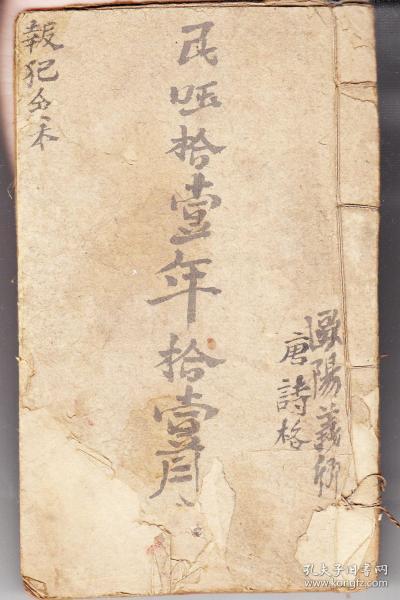 民國拾壹年拾壹月
報犯全本
歐陽義卿
唐詩格
孔夫子旧书网
www.kongfz.com